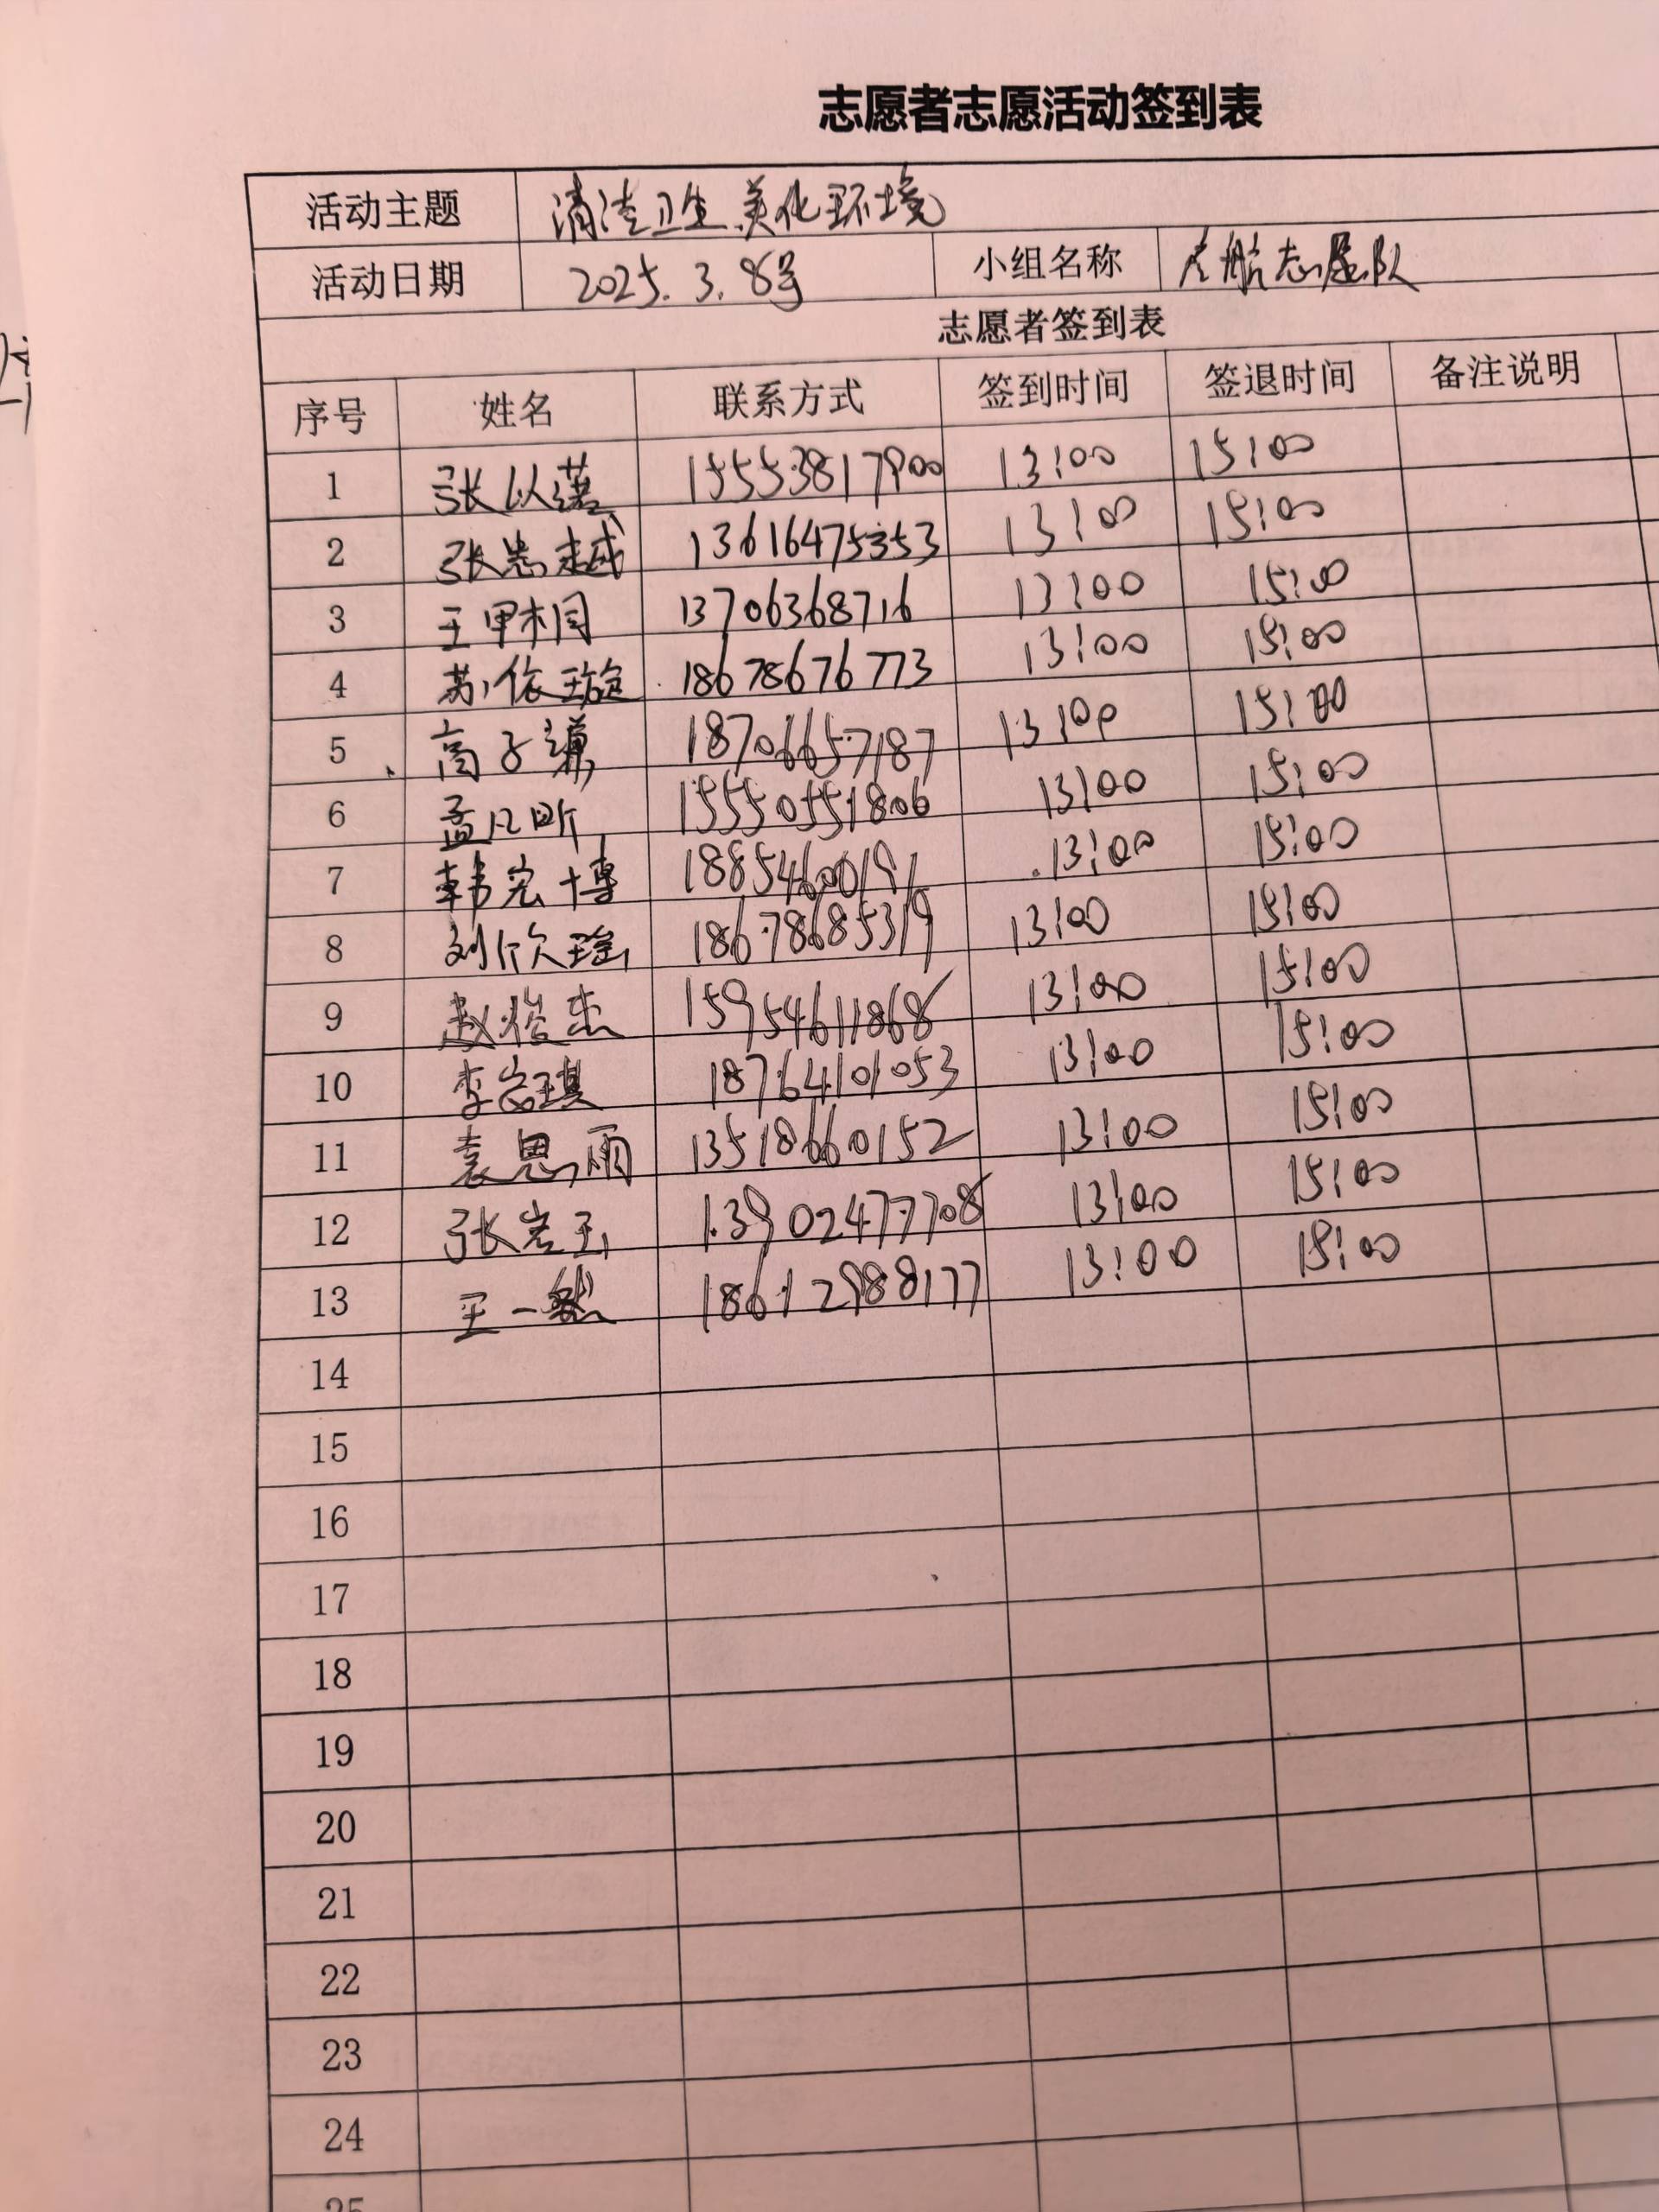 志愿者志愿活动签到表
活动主题 清洁卫生 美化环境
活动日期 2025.3.8号 小组名称 启航志愿队
志愿者签到表
序号 姓名 联系方式 签到时间 签退时间 备注说明
1 张以诺 15553817900 13:00 15:00
2 张志越 13616475353 13:00 15:00
3 王甲桐 13706368716 13:00 15:00
4 苏依璇 18678676773 13:00 15:00
5 高子谦 18706657187 13:00 15:00
6 孟凡昕 15550551806 13:00 15:00
7 韩宏博 18854600191 13:00 15:00
8 刘欣瑶 18678685319 13:00 15:00
9 赵俊杰 15954611868 13:00 15:00
10 李宗琪 18764101053 13:00 15:00
11 袁思雨 13518660152 13:00 15:00
12 张岩玉 13902477708 13:00 15:00
13 王一然 18612988177 13:00 15:00
14
15
16
17
18
19
20
21
22
23
24
25